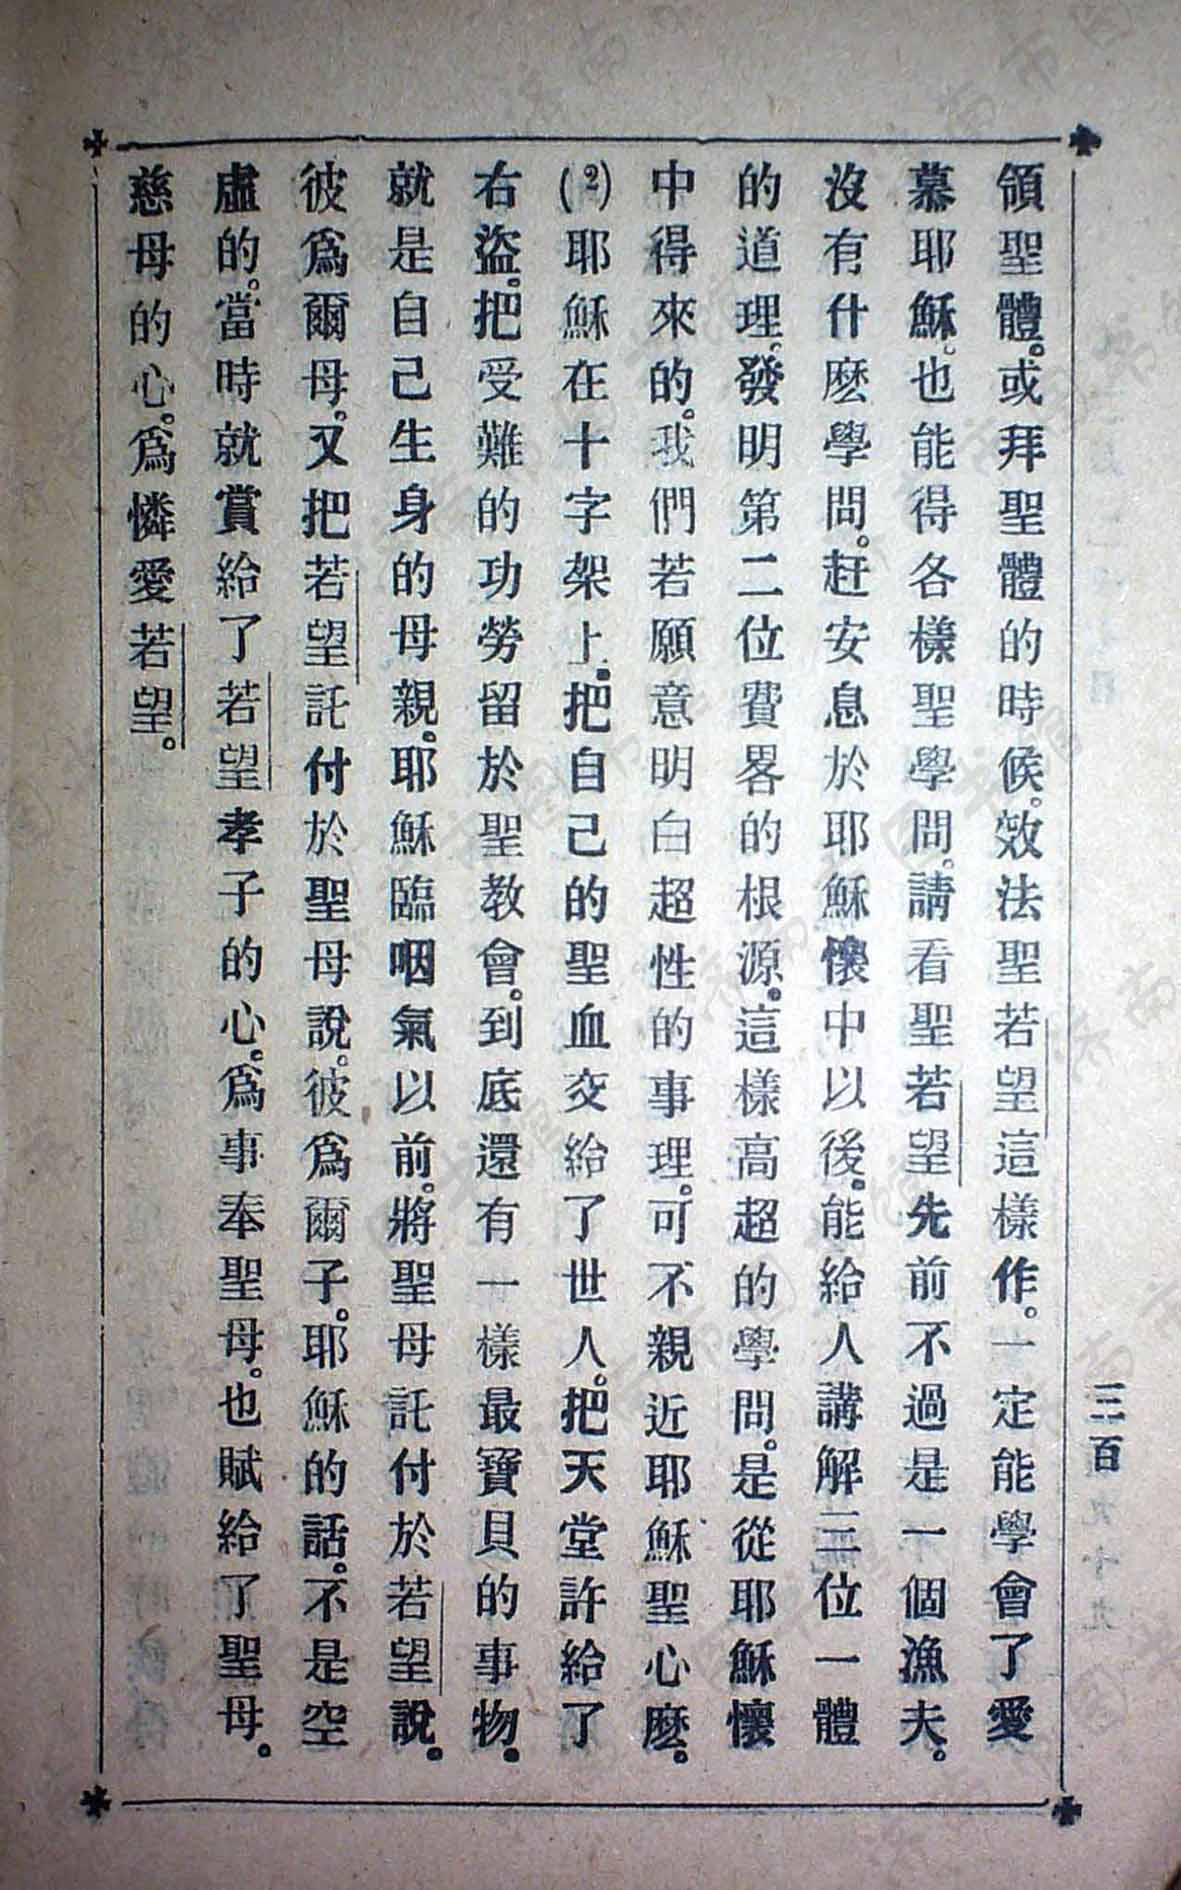 領聖體。或拜聖體的時候。效法聖若望這樣作。一定能學會了愛
慕耶穌。也能得各樣聖學問。請看聖若望先前不過是一個漁夫。
沒有什麽學問。赶安息於耶穌懷中以後。能給人講解三位一體
的道理。發明第二位費畧的根源。這樣高超的學問。是從耶穌懷
中得來的。我們若願意明白超性的事理。可不親近耶穌聖心麽。
(2)耶穌在十字架上。把自己的聖血交給了世人。把天堂許給了
右盜。把受難的功勞留於聖教會。到底還有一樣最寶貝的事物。
就是自己生身的母親。耶穌臨咽氣以前。將聖母託付於若望說。
彼爲爾母。又把若望託付於聖母說。彼爲爾子。耶穌的話。不是空
虛的。當時就賞給了若望孝子的心。爲事奉聖母。也賦給了聖母。
慈母的心。爲憐愛若望。
三百